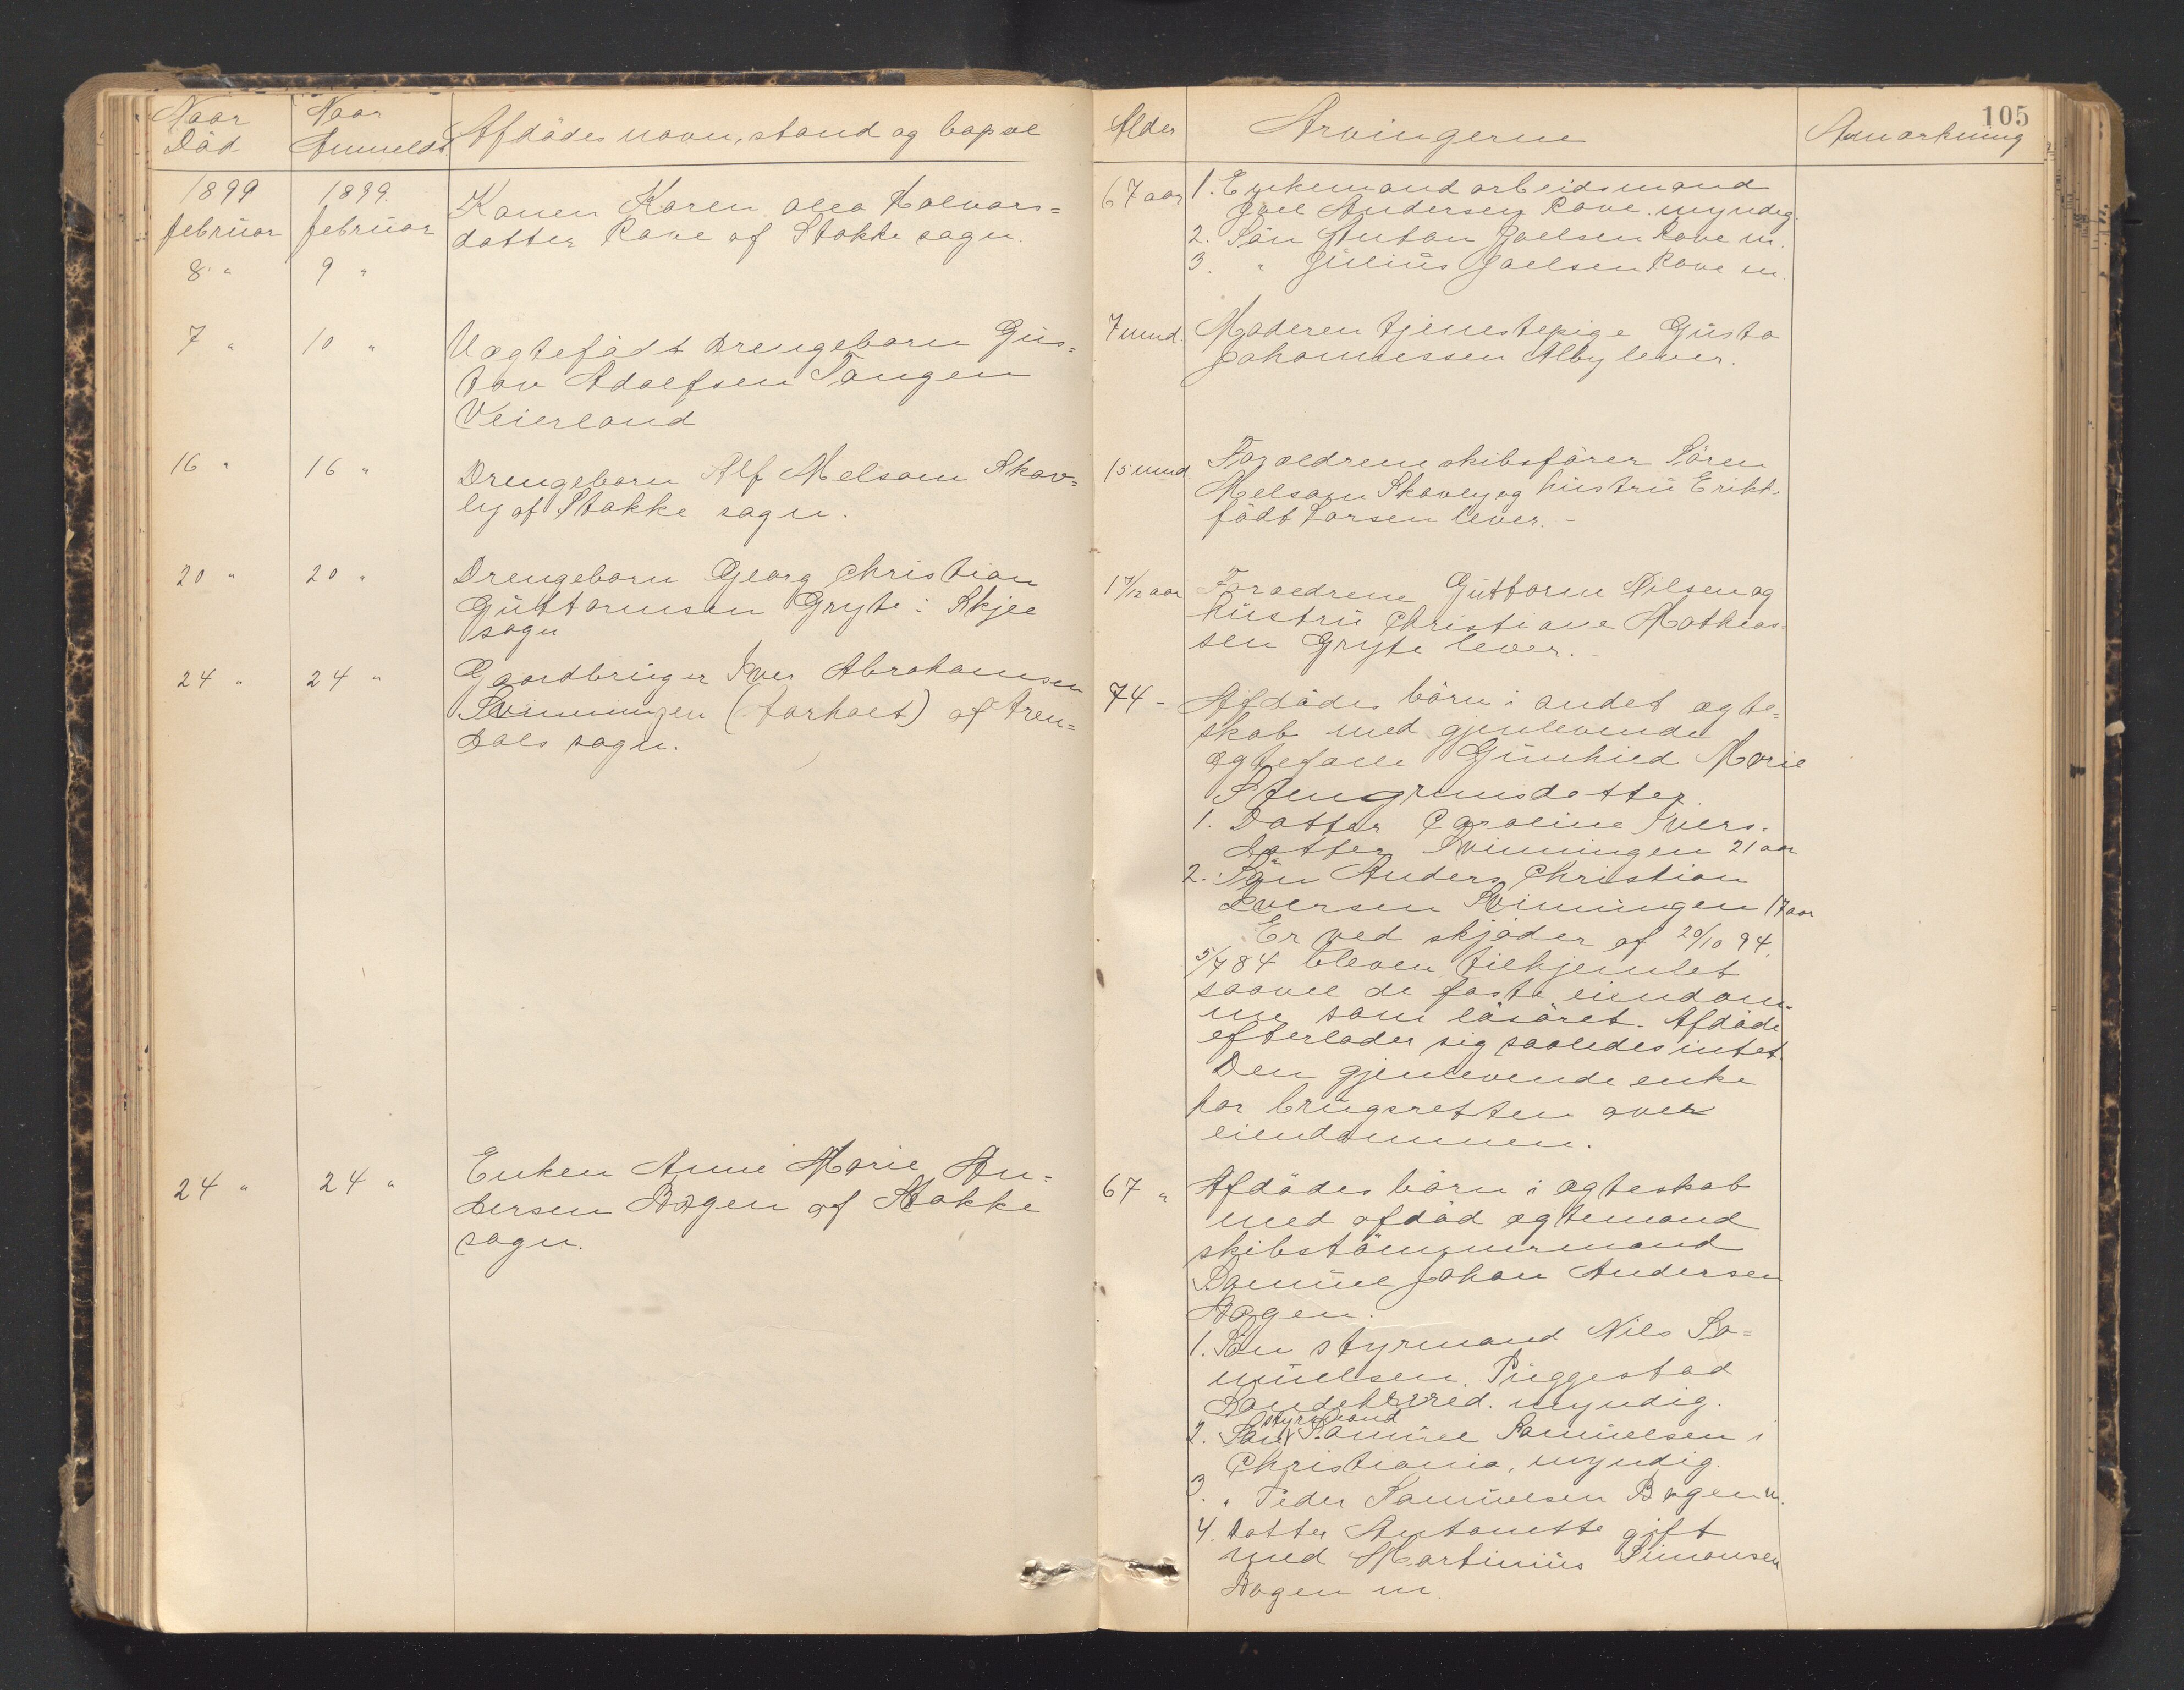 105
Naar Død
Naar Anmeldt
Afdødes navn, stand og bopæl
Alder
Arvingerne
Anmærkning
1899 februar 8 "
1899. februar 9 "
Konen Karen Olea Halvors=
datter Rove af Stokke sogn.
67 aar
1. Enkemand arbeidsmand
Joel Andersen Rove. myndig.
2. Søn Anton Joelsen Rove m.
3. " Julius Joelsen Rove m.
7 " 10 "
Uægtefødt drengebarn Gus=
tav Adolfsen Tangen
Veierland
7 mnd.
Moderen tjenestepige Gusta
Johannessen Alby lever.
16 " 16 "
Drengebarn Alf Melsom Skov=
ly af Stokke sogn.
15 mnd
Forældrene skibsfører Søren
Melsom Skovly og hustru Erikk.
født Larsen lever. -
20 " 20 "
Drengebarn Georg Christian
Guttormsen Gryte i Skjee
sogn
1 7/12 aar
Forældrene Guttorm Nilsen og
hustru Christiane Mathias-
sen Gryte lever. -
24 " 24 "
Gaardbruger Iver Abrahamsen
Svinningen (forhæt) af Aren=
dals sogn.
74 -
Afdødes børn i andet ægte=
skab med gjenlevende
ægtefælle Gunhild Marie
Stengrimsdatter.
1. Datter Caroline Ivers-
datter Svinningen 21 aar
2. Søn Anders Christian
Iversen Svinningen 17 aar
Er ved skjøder af 20/10 94,
5/7 84 bleven tilhjemlet
saavel de faste eiendom=
me som løsøret. Afdøde
efterlader sig saaledes intet.
Den gjenlevende enke
har brugsretten over
eiendommen.
24 " 24 "
Enken Anne Marie An=
dersen Bogen af Stokke
sogn.
67 "
Afdødes børn i ægteskab
med afdød ægtemand
skibstømmermand
Samuel Johan Andersen
Bogen.
1. Søn styrmand Nils Sa=
muelsen. Puggestad
Sandeherred. myndig.
styrmand
2. Søn Samuel Samuelsen i
Christiania, myndig.
3. " Peder Samuelsen Bogen m.
4. Datter Antonette gift
med Martinius Simonsen
Bogen m.